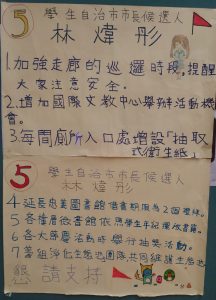 5 學生自治市市長候選人
林煒彤
1.加強走廊的巡邏時段,提醒
大家注意安全.
2.增加國際文教中心舉辦活動機
會。
3.每間廁所入口處增設「抽取
式衛生紙」
5 學生自治市市長候選人
林煒彤
4.延長忠美圖書館借書期限為2個星期。
5.各樓層微書依照學生年紀擺放書籍。
6.各大節慶活動時舉行抽獎活動。
7.籌組淨化生態池團隊,共同維護生態池
懇請支持